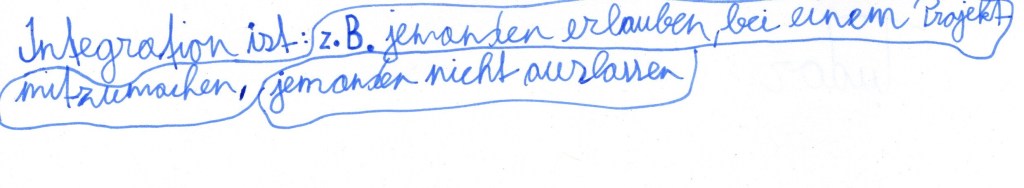 Integration ist: z.B. jemanden erlauben, bei einem Projekt
mitzumachen, jemanden nicht auslassen